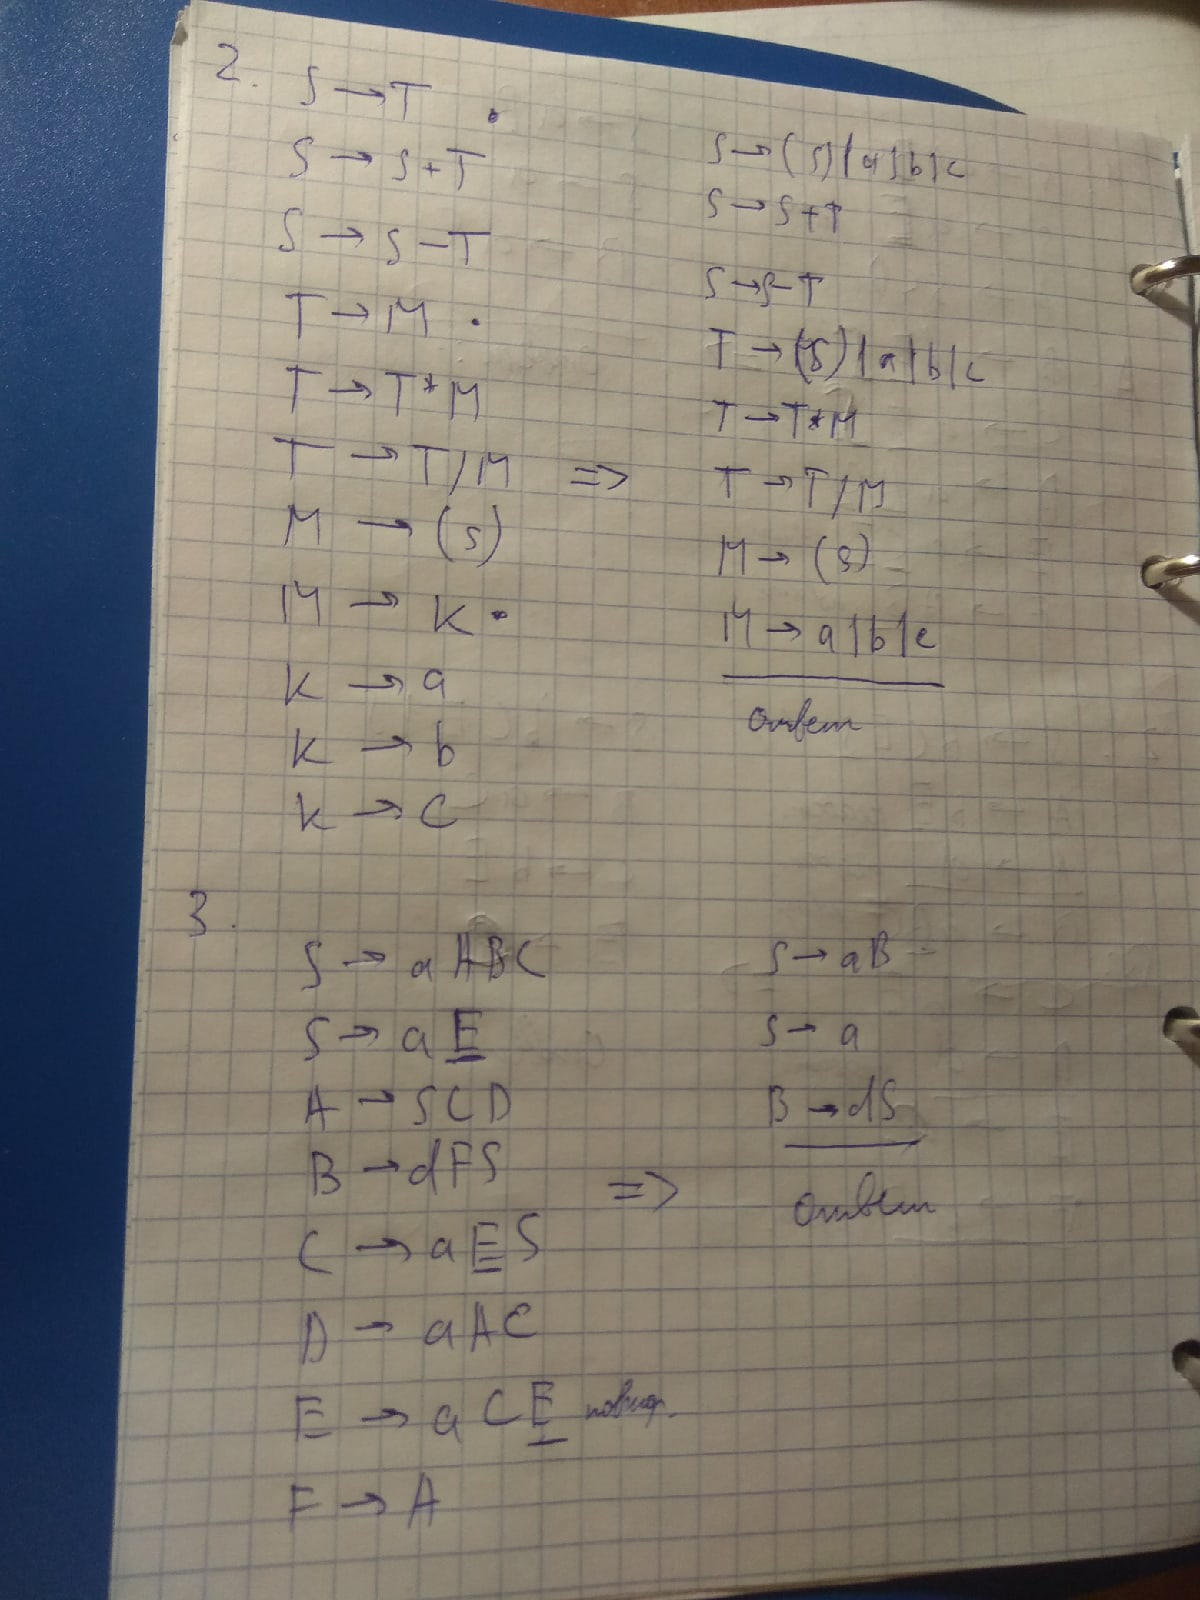 2.
S → T .
S → S + T
S → S - T
T → M .
T → T * M
T → T / M =>
M → (S)
M → K .
K → a
K → b
K → c
S → (S) | a | b | c
S → S + T
S → S - T
T → (S) | a | b | c
T → T * M
T → T / M
M → (S)
M → a | b | c
Ответ
3.
S → aABC
S → aE
A → SCD
B → dFS =>
C → aES
D → aAC
E → aCE повтор.
F → A
S → aB
S → a
B → dS
Ответ